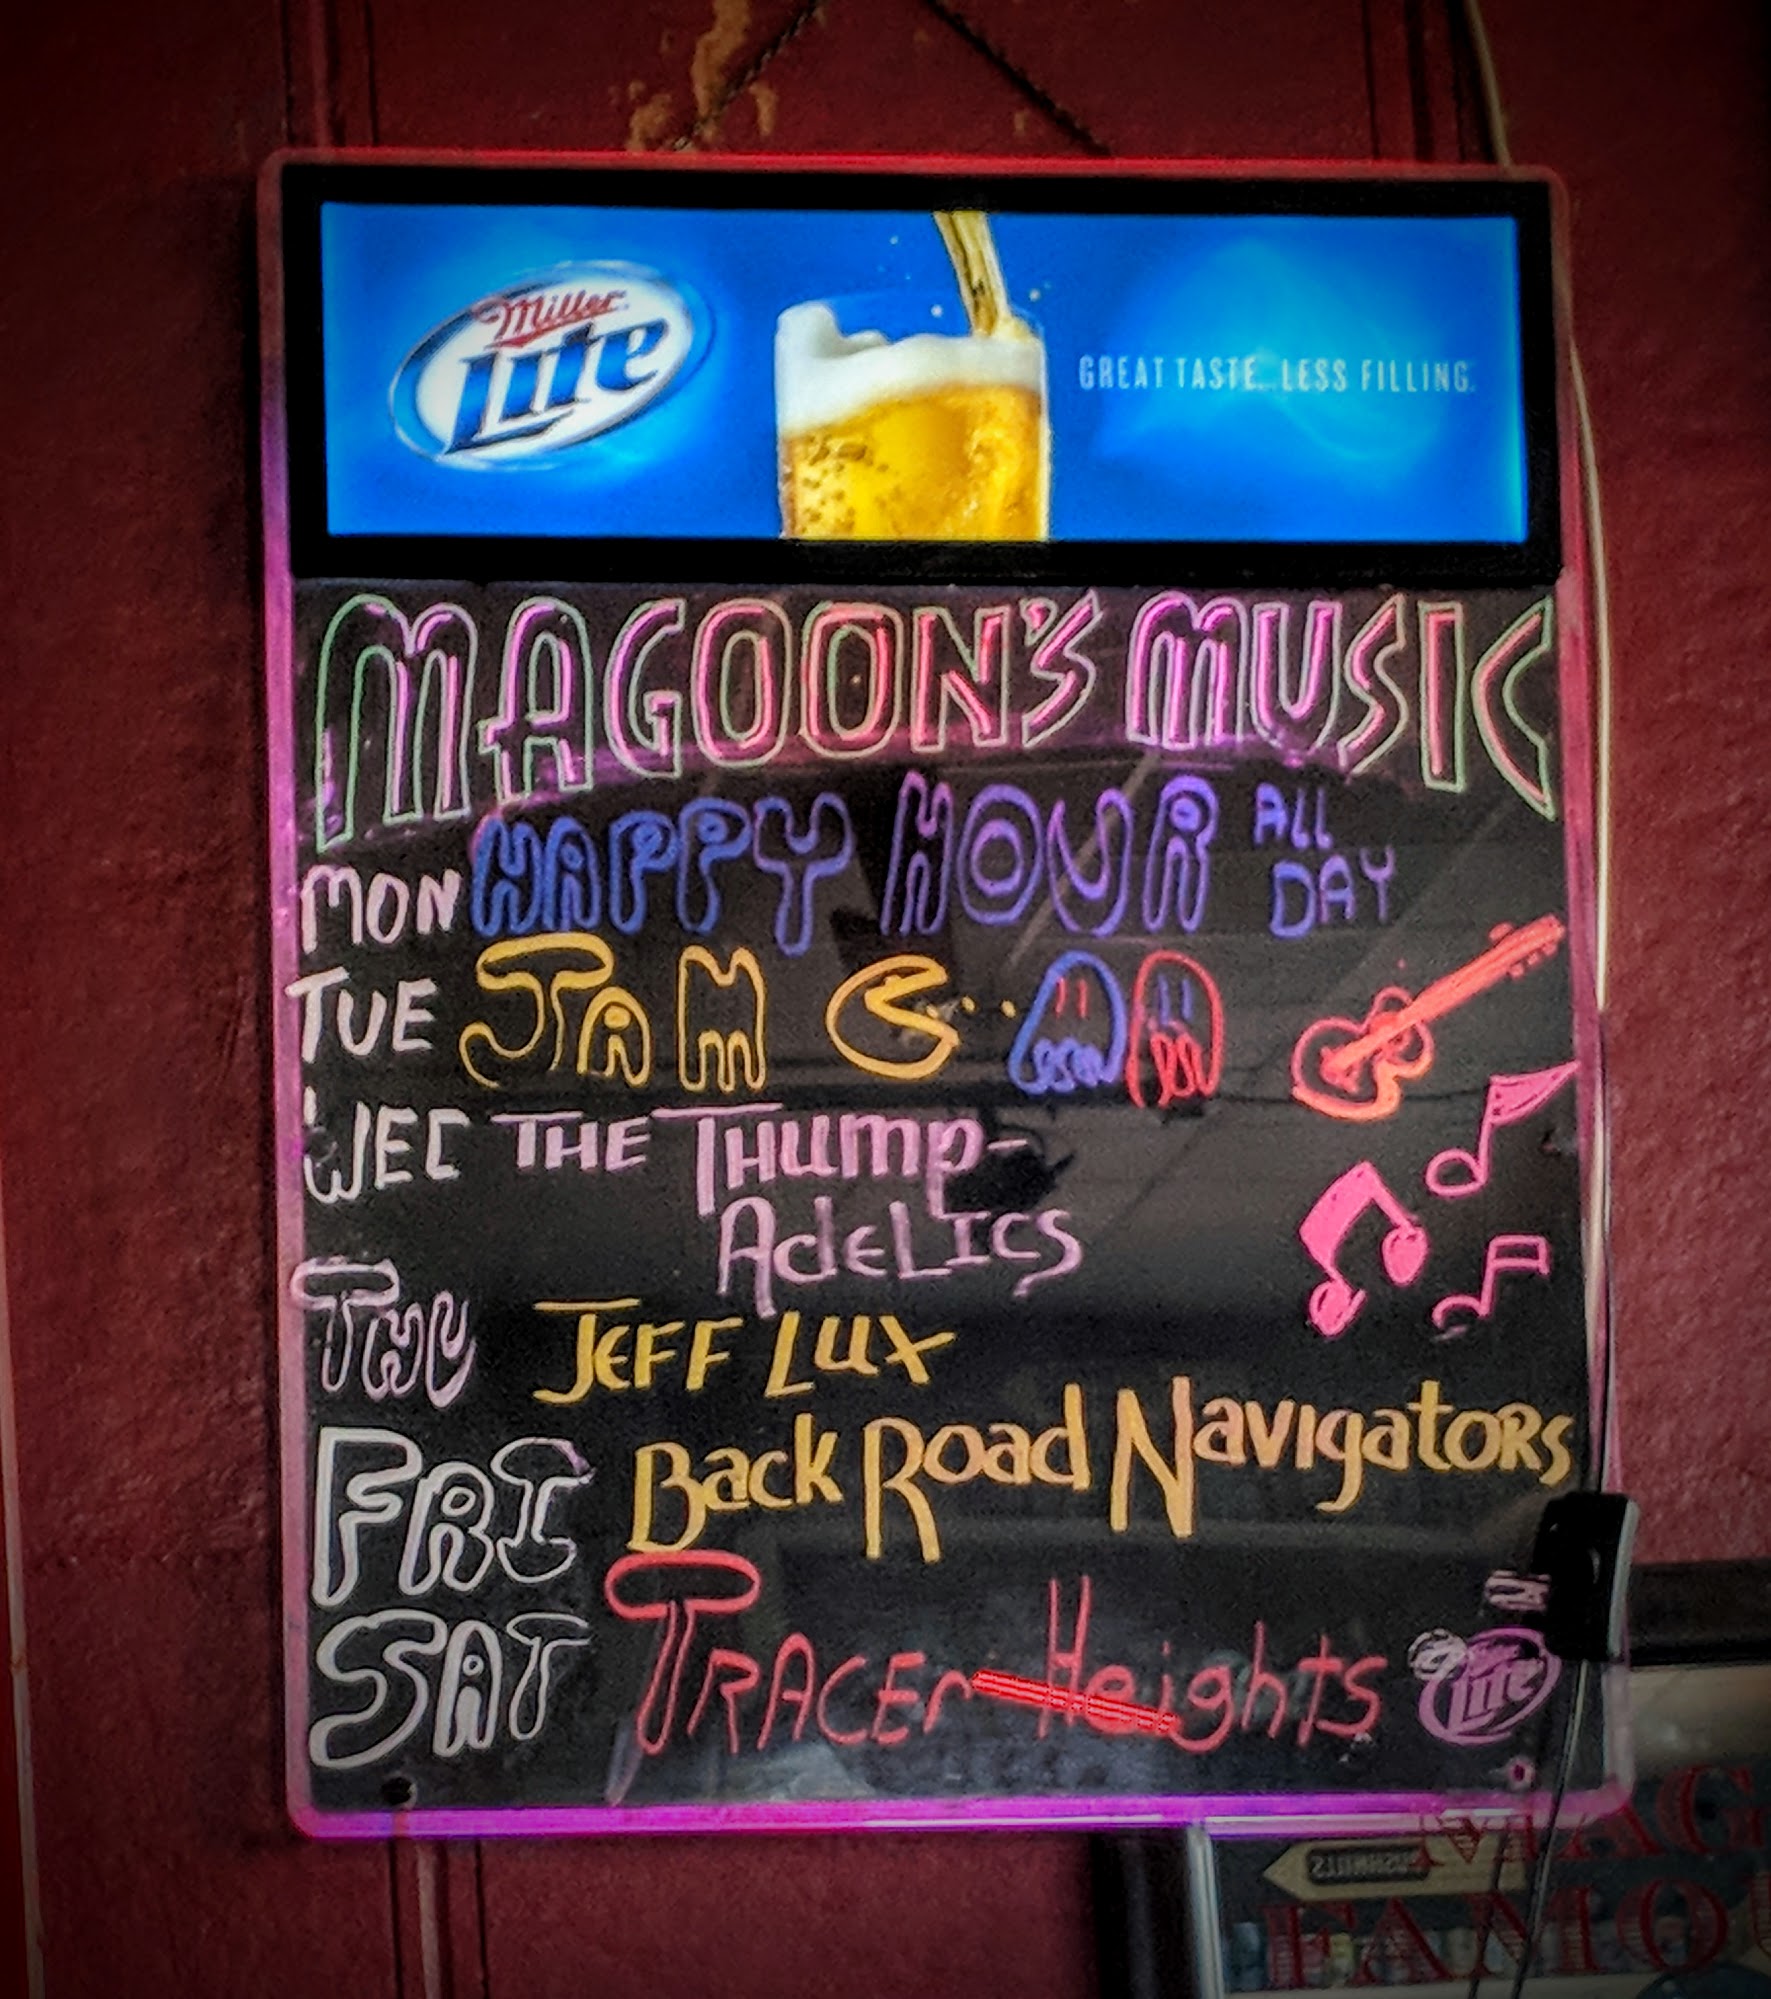 Miller
Lite
GREAT TASTE. LESS FILLING.
MAGOON'S MUSIC
MON HAPPY HOUR ALL DAY
TUE JAM
WED THE THUMP-
ADELICS
THU JEFF LUX
FRI Back Road Navigators
SAT TRACER Heights
Lite
FAMO